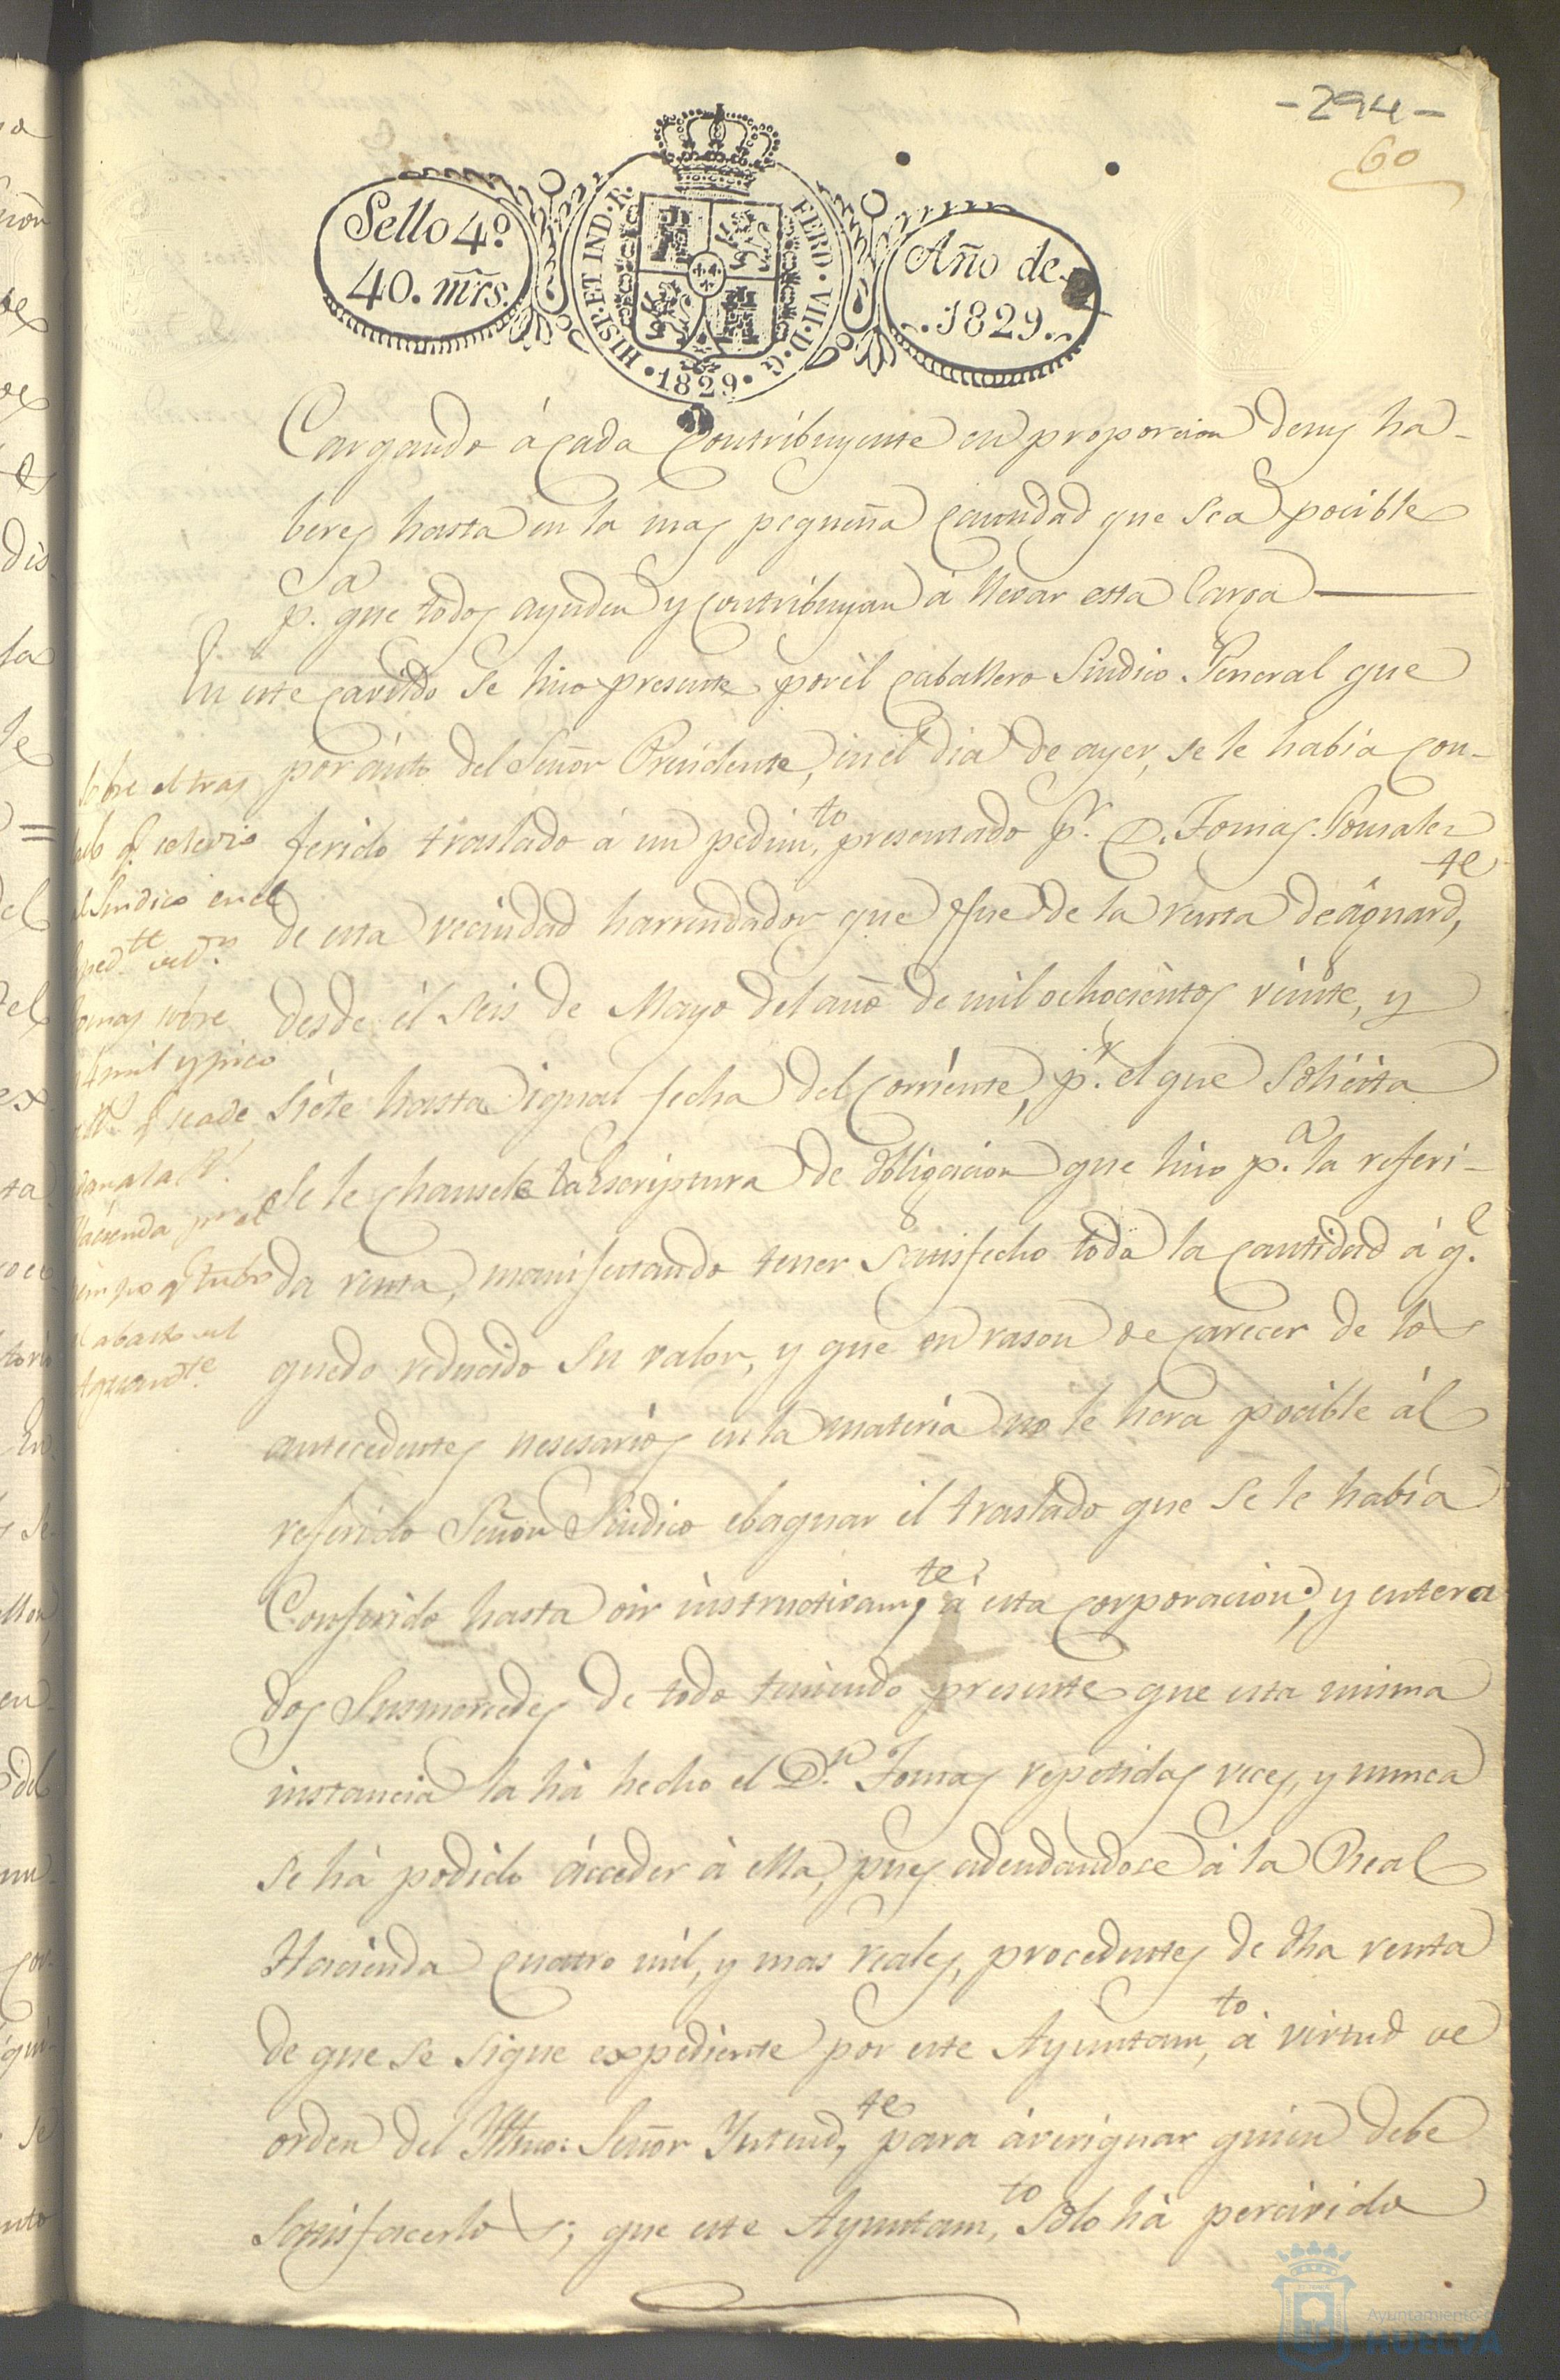 -294-
60
Sello 4º
40. mrs.
HISP. ET IND. R.
FERD. VII. D. G.
1829
Año de
1829.
Cargando á cada Contribuyente en proporcion desus ha-
beres hasta en la mas pequeña cantidad que sea pocible
p.a que todos ayuden y contribuyan á llevar esta Carga
En este cavildo se hiso presente por él caballero Sindico General que
por áuto del Señor Precidente, en él dia de ayer, se le había con-
ferido traslado á un pedim.to presentado p.r D. Tomas Gonzalez
de esta vecindad harrendador que fue de la renta de águard.te
desde él seis de Mayo del año de mil ochocientos veinte, y
siete hasta igual fecha del corriente, p.r el que solicita
se le chansele la Escriptura de obligacion que hiso p.a la referi-
da renta, manifestando tener satisfecho toda la cantidad á q.e
quedo reducido su valor, y que en rason de carecer de los
antecedentes nesesarios en la materia no le hera pocible ál
referido Señor Sindico ebaquar él traslado que se le había
Conferido hasta oir instructivam.te á esta corporacion; y entera
dos Susmercedes de todo teniendo presente que esta misma
instancia la há hecho el D.n Tomas repetidas veces, y nunca
se há podido ácceder á ella, pues adeudandose á la Real
Hacienda cuatro mil, y mas reales, procedentes de dha renta
de que se sigue expediente por este Ayuntam.to á virtud de
orden del Yltmo: Señor Yntend.te para áveriguar quien debe
Satisfacerlos; que este Ayuntam.to solo há percivido
sobre el tras
lado q.e se le dio
al Sindico en el
sobre
4 mil y pico
Hacienda por el
tiempo q.e tubo
el abasto del
Aguard.te
Ayuntamiento de
HUELVA